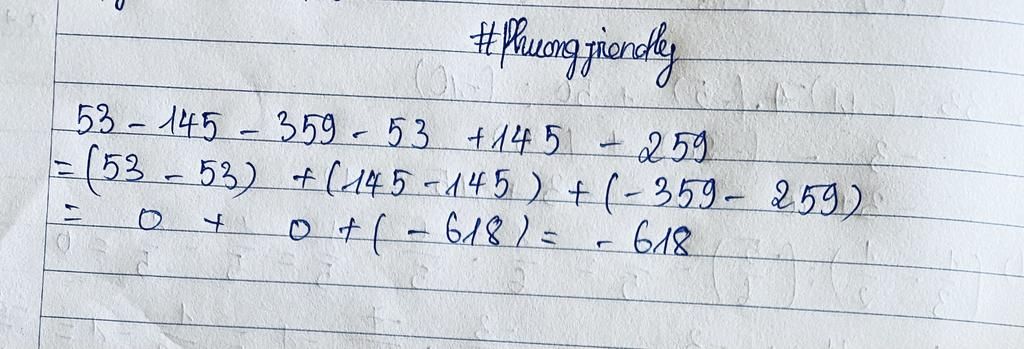 #Phuongfriendly
53 - 145 - 359 - 53 + 145 - 259
= (53 - 53) + (145 - 145) + (- 359 - 259)
= 0 + 0 + ( - 618) = - 618